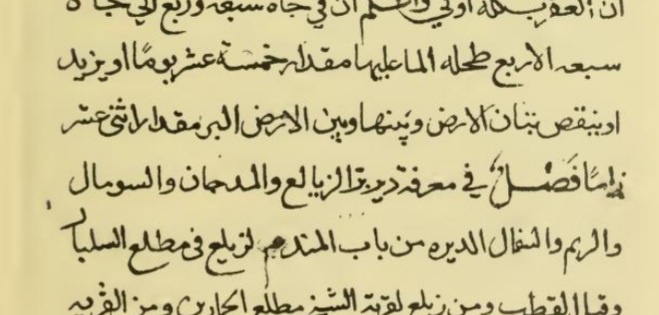 ان العقرب كله اولي واعلم ان في جاه سبعه وربع الي جاه
سبعه الاربع طحله الما عليها مقدار خمسة عشر يومًا او يزيد
او ينقص بتبان الارض وبينها وبين الارض البر مقدار اثني عشر
زامًا فصل في معرفة ديرة بر الزيالع والمدحان والسومال
والريم والنفال الديره من باب المندم لزيلع في مطلع السلبار
وقبال القطب ومن زيلع لقرية الشيخ مطلع الحارين ومن القريه